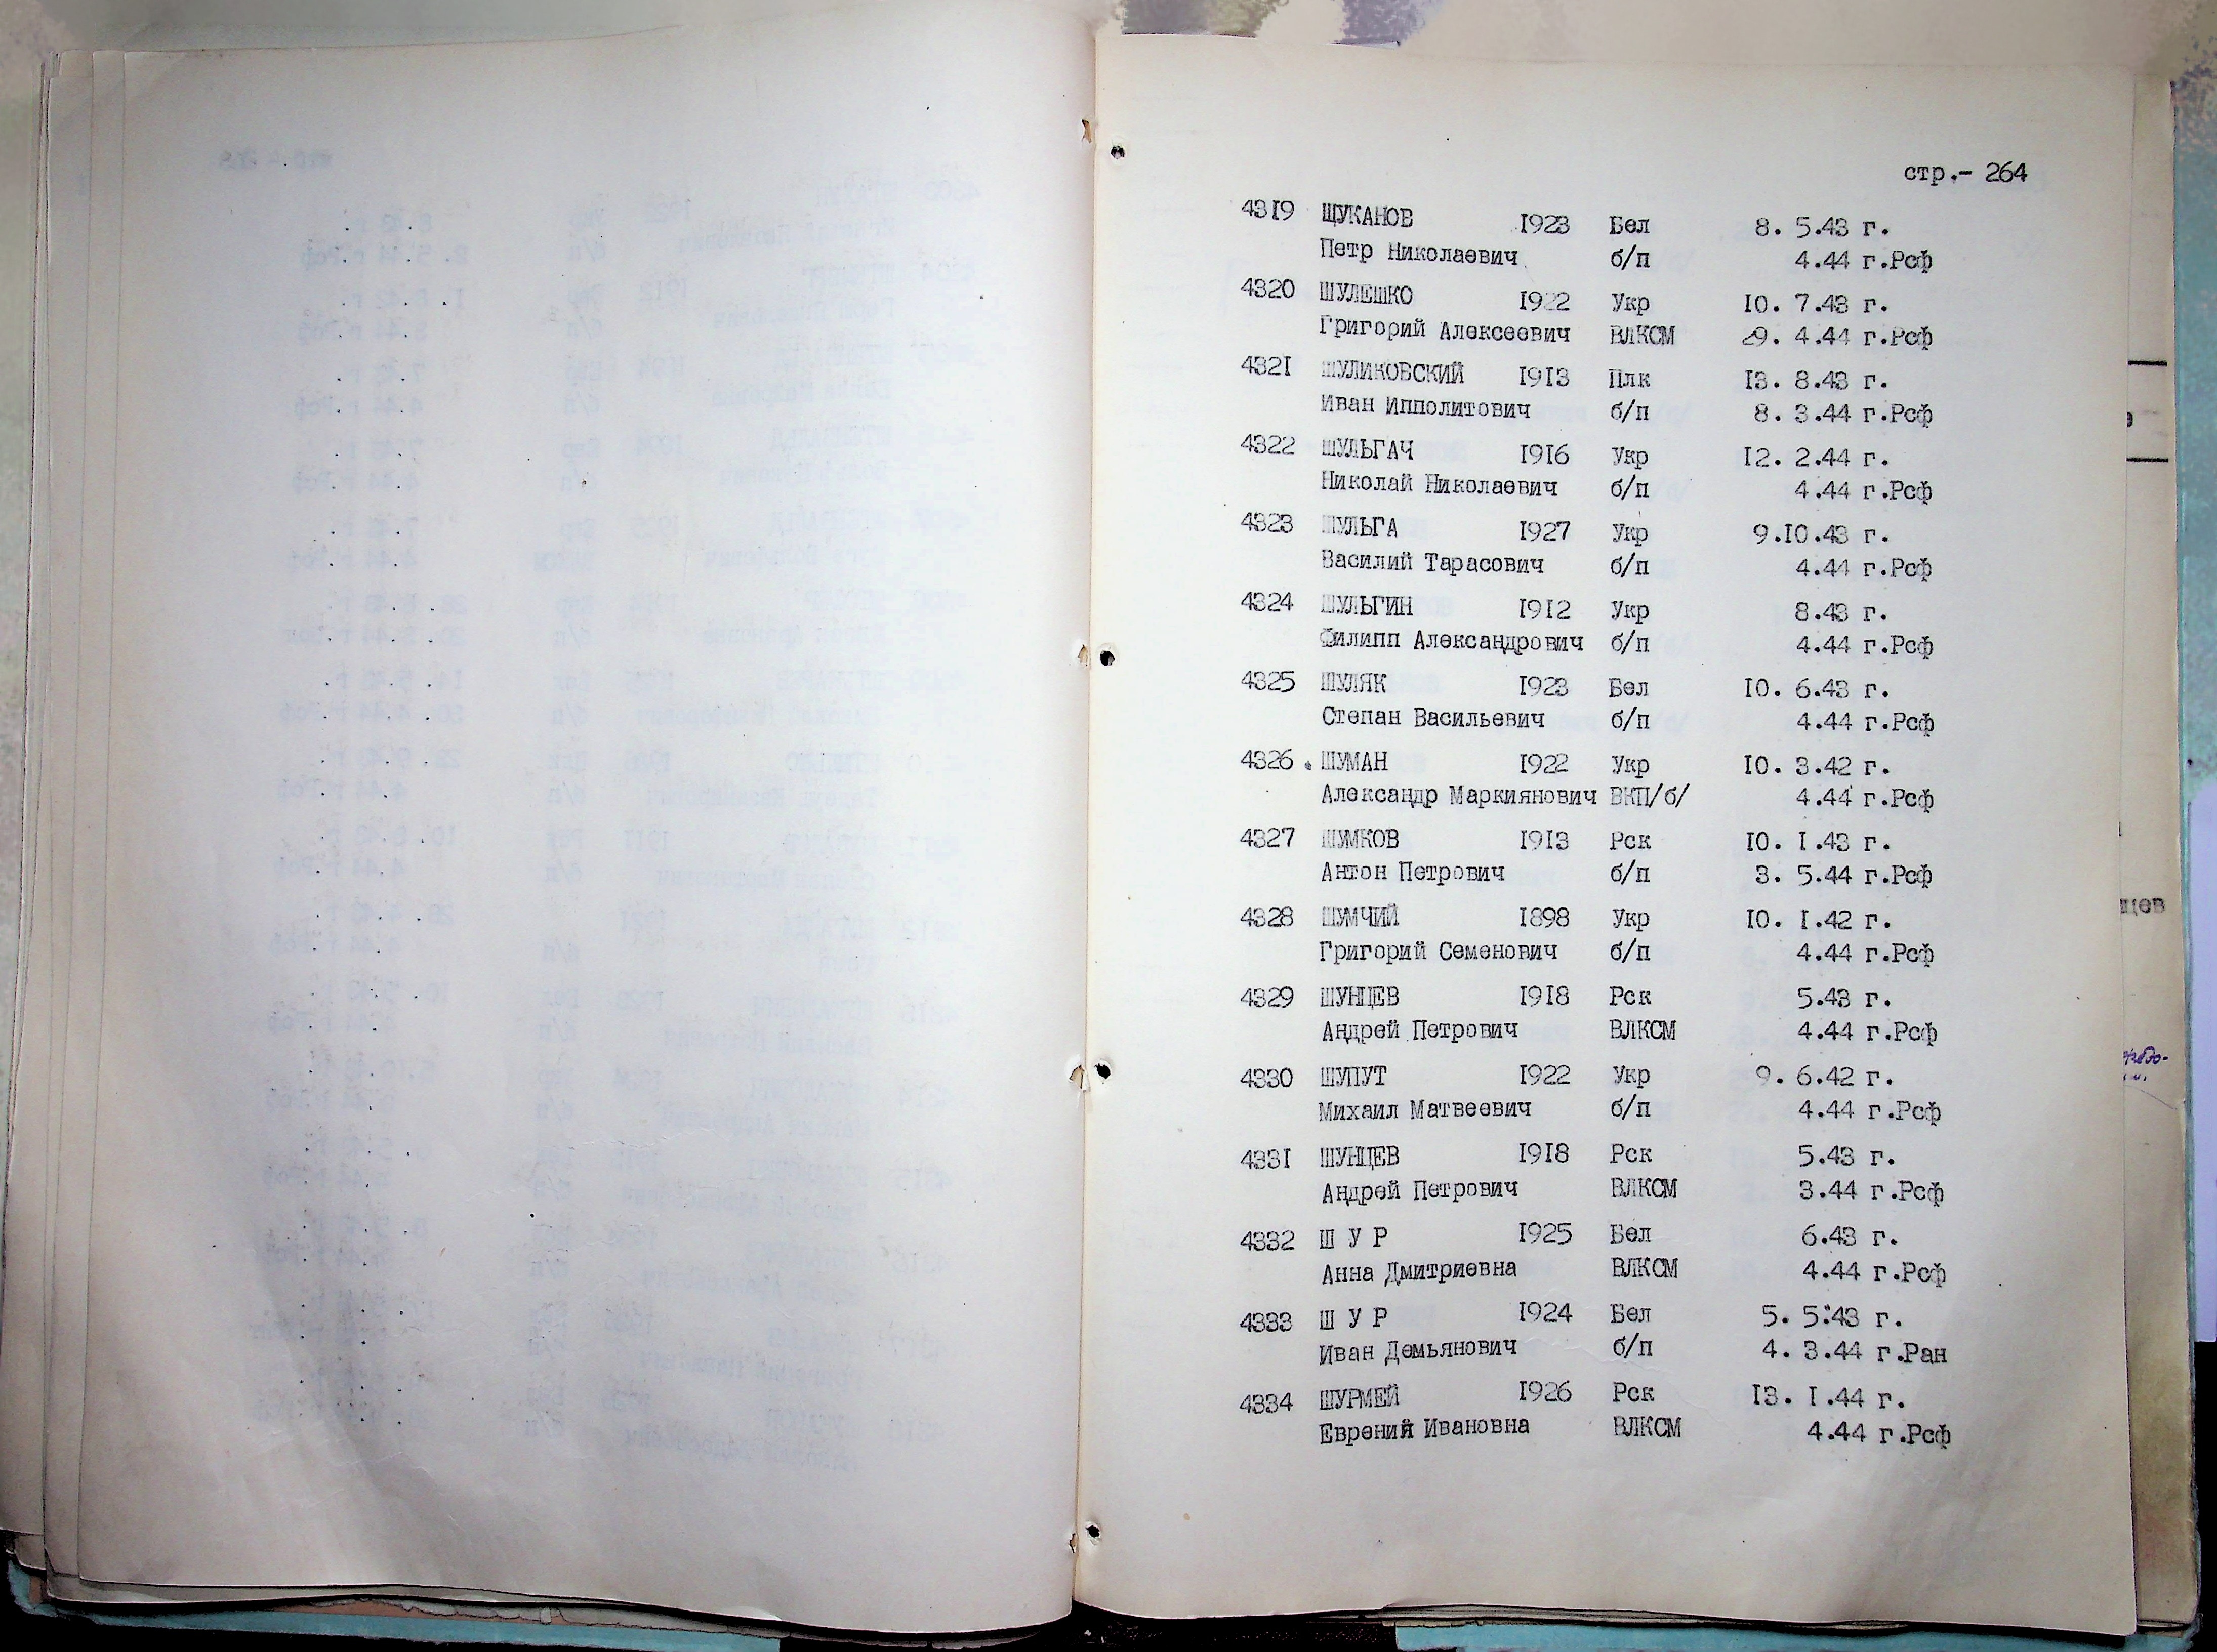 стр.- 264
4319 ЩУКАНОВ 1923 Бел 8. 5.43 г.
Петр Николаевич б/п 4.44 г.Рсф
4320 ШУЛЕШКО 1922 Укр 10. 7.43 г.
Григорий Алексеевич ВЛКСМ 29. 4.44 г.Рсф
4321 ШУЛИКОВСКИЙ 1913 Плк 13. 8.43 г.
Иван Ипполитович б/п 8. 3.44 г.Рсф
4322 ШУЛЬГАЧ 1916 Укр 12. 2.44 г.
Николай Николаевич б/п 4.44 г.Рсф
4323 ШУЛЬГА 1927 Укр 9.10.43 г.
Василий Тарасович б/п 4.44 г.Рсф
4324 ШУЛЬГИН 1912 Укр 8.43 г.
Филипп Александрович б/п 4.44 г.Рсф
4325 ШУЛЯК 1923 Бел 10. 6.43 г.
Степан Васильевич б/п 4.44 г.Рсф
4326. ШУМАН 1922 Укр 10. 3.42 г.
Александр Маркиянович ВКП/б/ 4.44 г.Рсф
4327 ШУМКОВ 1913 Рск 10. 1.43 г.
Антон Петрович б/п 3. 5.44 г.Рсф
4328 ШУМЧИЙ 1898 Укр 10. 1.42 г.
Григорий Семенович б/п 4.44 г.Рсф
4329 ШУНЦЕВ 1918 Рск 5.43 г.
Андрей Петрович ВЛКСМ 4.44 г.Рсф
4330 ШУПУТ 1922 Укр 9. 6.42 г.
Михаил Матвеевич б/п 4.44 г.Рсф
4331 ШУНЦЕВ 1918 Рск 5.43 г.
Андрей Петрович ВЛКСМ 3.44 г.Рсф
4332 Ш У Р 1925 Бел 6.43 г.
Анна Дмитриевна ВЛКСМ 4.44 г.Рсф
4333 Ш У Р 1924 Бел 5. 5.43 г.
Иван Демьянович б/п 4. 3.44 г.Ран
4334 ШУРМЕЙ 1926 Рск 13. 1.44 г.
Еврений Ивановна ВЛКСМ 4.44 г.Рсф